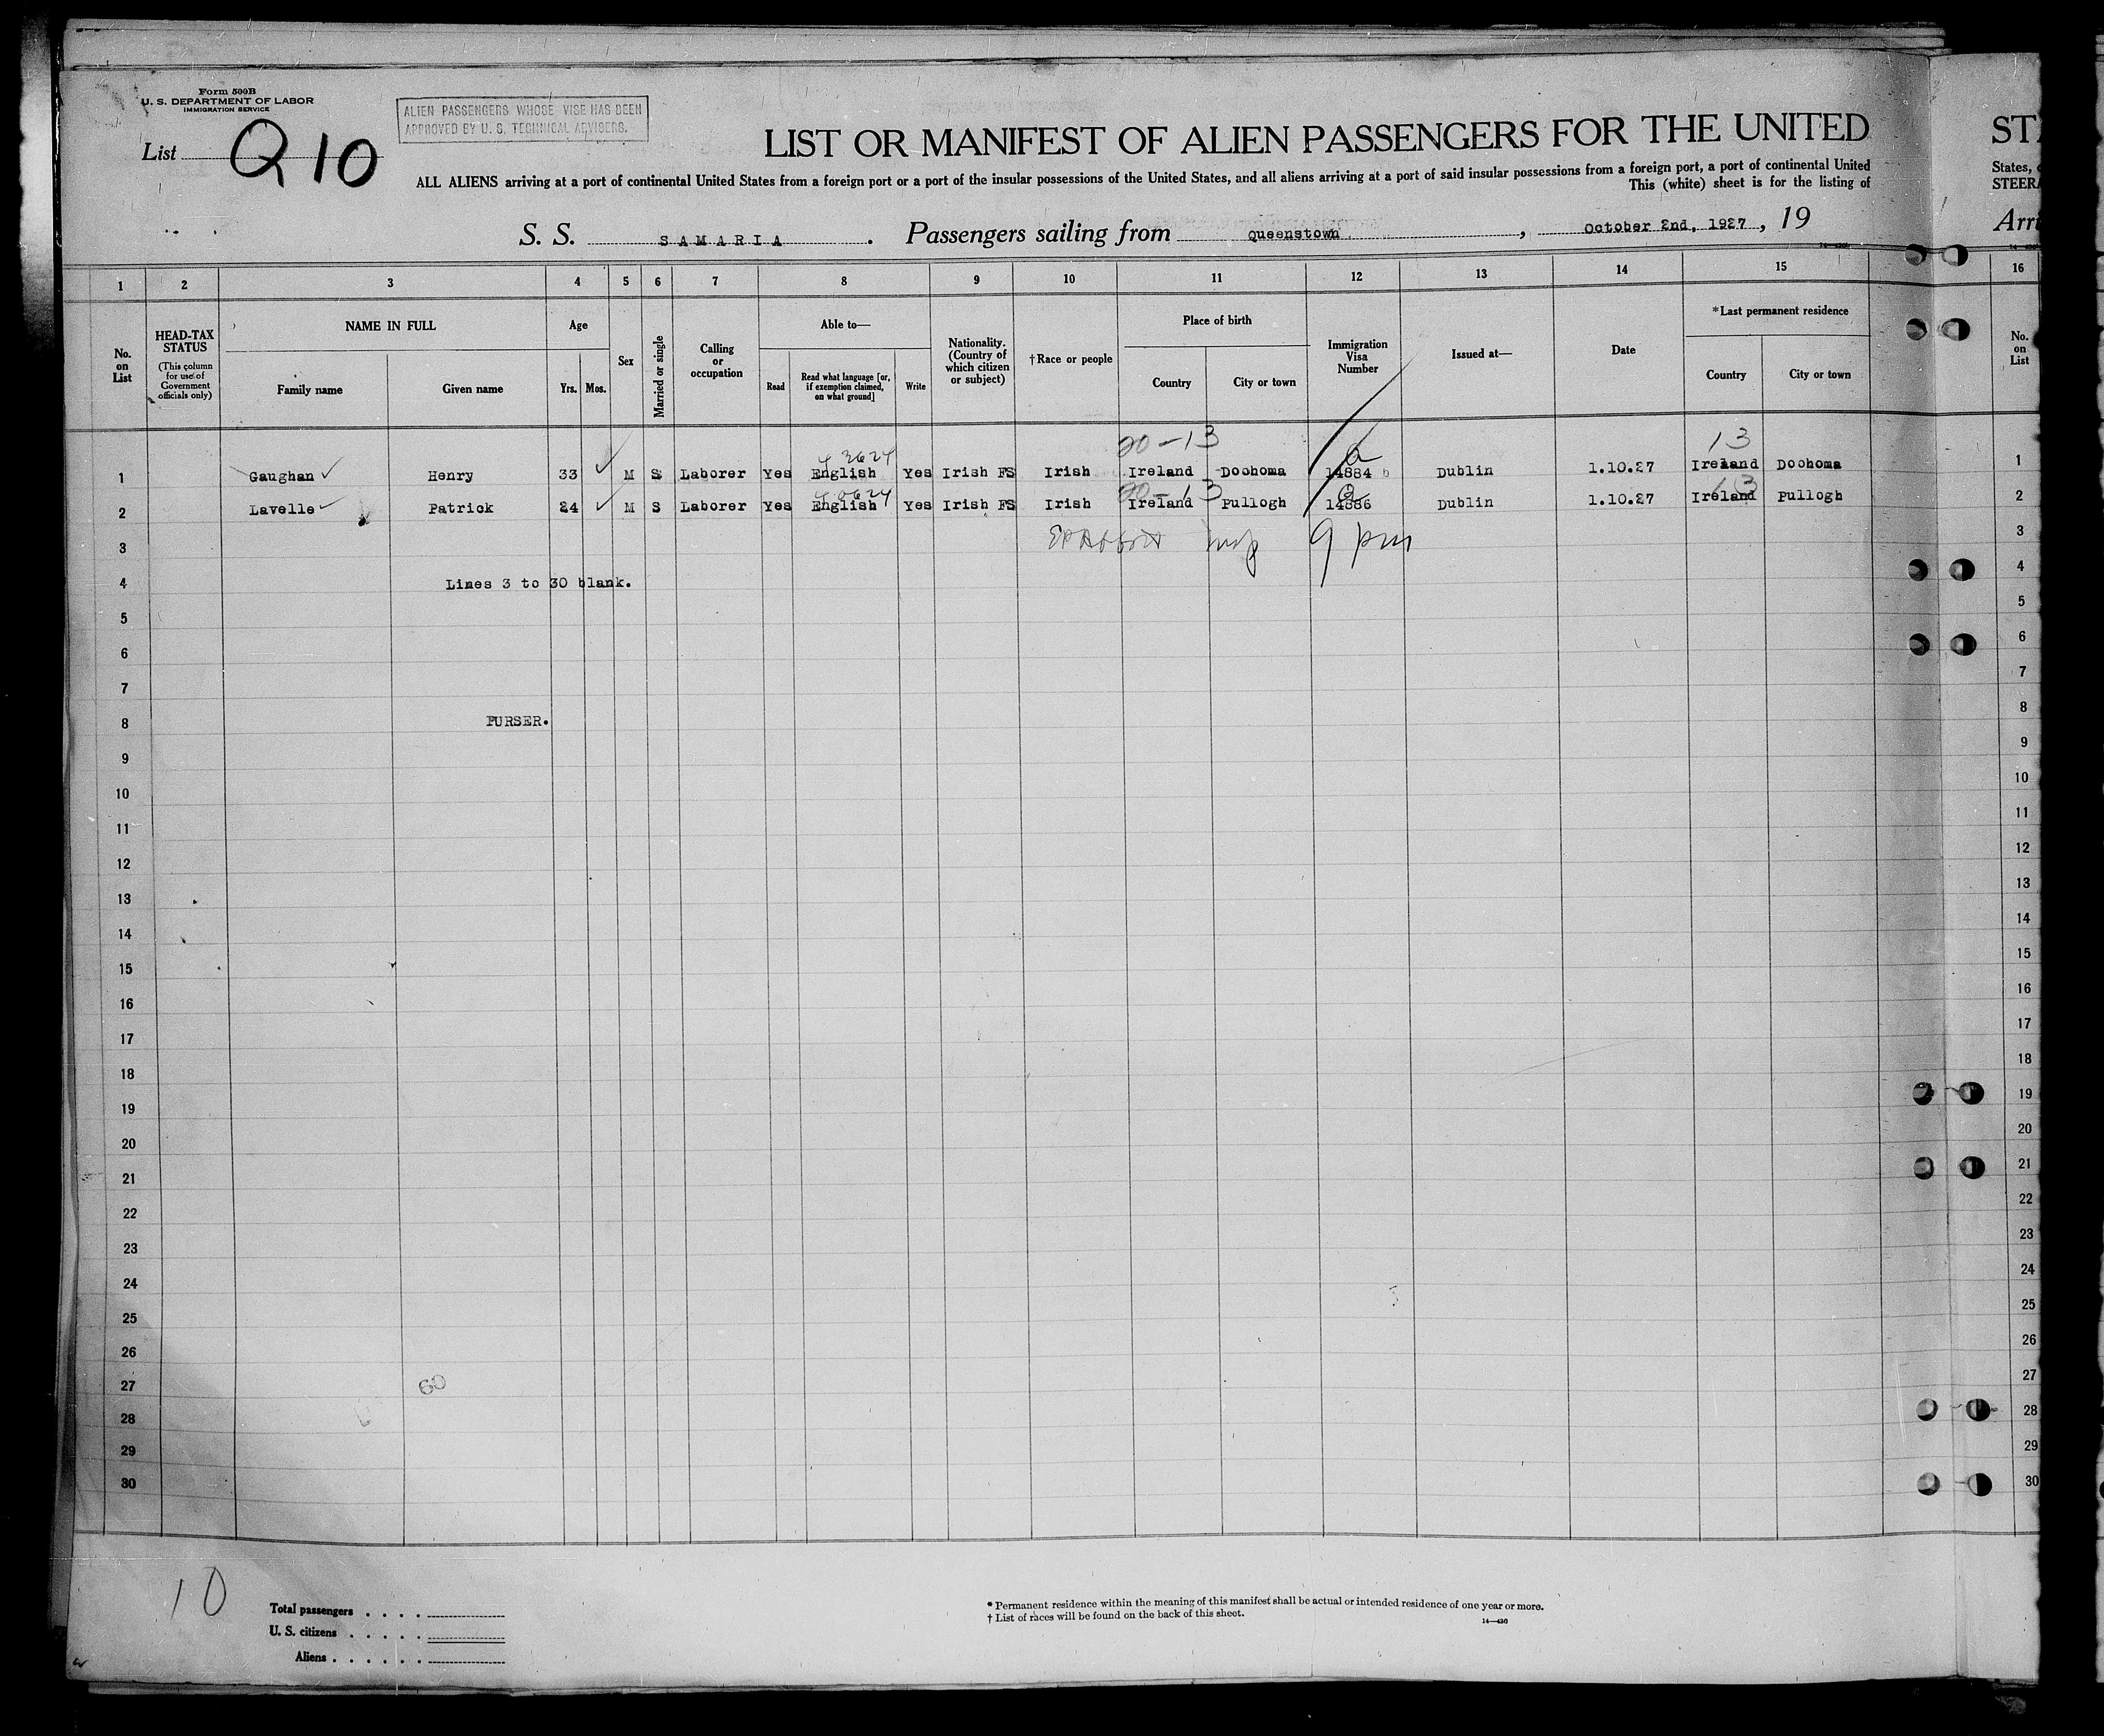 Form 500B
U. S. DEPARTMENT OF LABOR
IMMIGRATION SERVICE
ALIEN PASSENGERS WHOSE VISE HAS BEEN
APPROVED BY U. S. TECHNICAL ADVISERS.
List Q10
LIST OR MANIFEST OF ALIEN PASSENGERS FOR THE UNITED
ALL ALIENS arriving at a port of continental United States from a foreign port or a port of the insular possessions of the United States, and all aliens arriving at a port of said insular possessions from a foreign port, a port of continental United
This (white) sheet is for the listing of
S. S. SAMARIA. Passengers sailing from Queenstown, October 2nd, 1927, 19
States,
STEER
1 2 3 4 5 6 7 8 9 10 11 12 13 14 15 16
No. on List
HEAD-TAX STATUS
(This column for use of Government officials only)
NAME IN FULL
Family name Given name
Age
Yrs. Mos.
Sex
Married or single
Calling or occupation
Able to—
Read
Read what language [or, if exemption claimed, on what ground]
Write
Nationality. (Country of which citizen or subject)
†Race or people
Place of birth
Country City or town
Immigration Visa Number
Issued at—
Date
*Last permanent residence
Country City or town
No. on List
20-13 13
1 Gaughan Henry 33 M S Laborer Yes English Yes Irish FS Irish Ireland Doohoma 14884 Dublin 1.10.27 Ireland Doohoma 1
20-13 13
2 Lavelle Patrick 24 M S Laborer Yes English Yes Irish FS Irish Ireland Pullogh 14886 Dublin 1.10.27 Ireland Pullogh 2
3 9 pm 3
4 Lines 3 to 30 blank. 4
5 5
6 6
7 7
8 PURSER. 8
9 9
10 10
11 11
12 12
13 13
14 14
15 15
16 16
17 17
18 18
19 19
20 20
21 21
22 22
23 23
24 24
25 25
26 26
27 60 27
28 28
29 29
30 30
10
Total passengers
U. S. citizens
Aliens
* Permanent residence within the meaning of this manifest shall be actual or intended residence of one year or more.
† List of races will be found on the back of this sheet.
14—430